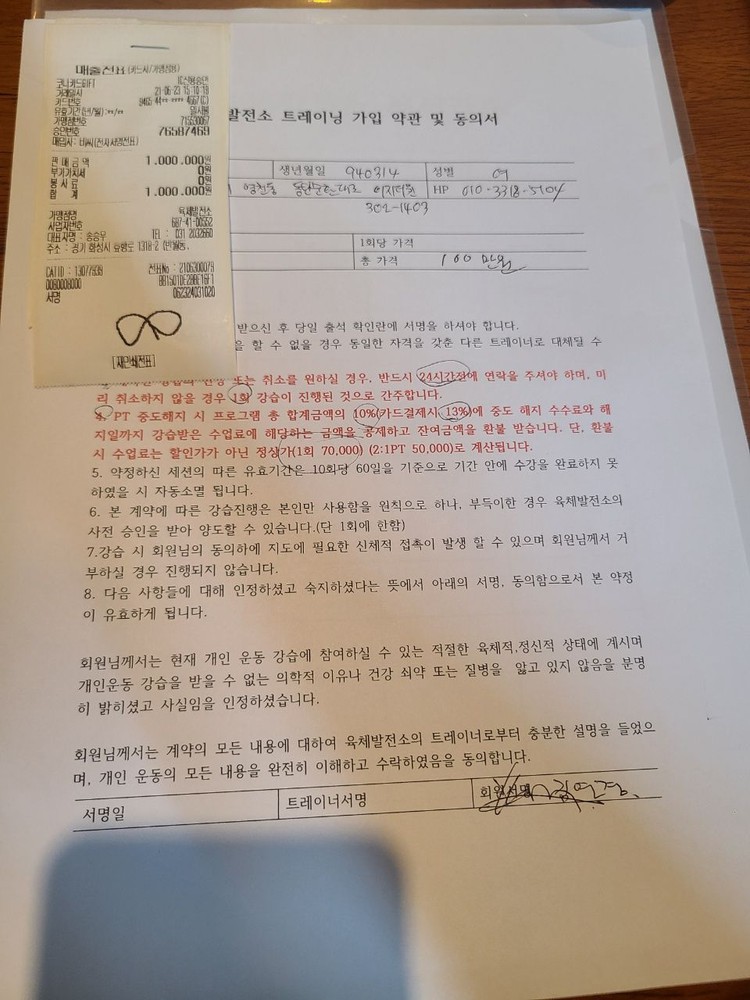 매출전표 (카드사/가맹점용)
코나카드GIFT IC신용승인
거래일시 21-06-23 15:10:18
카드번호 9465-44**-****-4567(C)
유효기간(년/월):**/** 일시불
가맹점번호
승인번호 76587469
매입사: 비씨(전자서명전표)
판매금액 1.000.000원
부가가치세 0원
봉사료 0원
합계 1.000.000원
가맹점명 육체발전소
사업자번호 687-41-00552
대표자명: 송승우 TEL: 031 2032660
주소: 경기 화성시 효행로 1318-2
CATID: 13077939 전표No: 2106300079
서명
[재인쇄전표]
발전소 트레이닝 가입 약관 및 동의서
생년월일 940314 성별 여
영천동 이지더원 HP 010-3318-5704
302-1403
1회당 가격
총 가격 100만원
받으신 후 당일 출석 확인란에 서명을 하셔야 합니다.
을 할 수 없을 경우 동일한 자격을 갖춘 다른 트레이너로 대체될 수
또는 취소를 원하실 경우, 반드시 24시간전에 연락을 주셔야 하며, 미
리 취소하지 않을 경우 1회 강습이 진행된 것으로 간주합니다.
4. PT 중도해지 시 프로그램 총 합계금액의 10%(카드결제시 13%)에 중도 해지 수수료와 해
지일까지 강습받은 수업료에 해당하는 금액을 공제하고 잔여금액을 환불 받습니다. 단, 환불
시 수업료는 할인가가 아닌 정상가(1회 70,000) (2:1PT 50,000)로 계산됩니다.
5. 약정하신 세션의 따른 유효기간은 10회당 60일을 기준으로 기간 안에 수강을 완료하지 못
하였을 시 자동소멸 됩니다.
6. 본 계약에 따른 강습진행은 본인만 사용함을 원칙으로 하나, 부득이한 경우 육체발전소의
사전 승인을 받아 양도할 수 있습니다.(단 1회에 한함)
7.강습 시 회원님의 동의하에 지도에 필요한 신체적 접촉이 발생 할 수 있으며 회원님께서 거
부하실 경우 진행되지 않습니다.
8. 다음 사항들에 대해 인정하셨고 숙지하셨다는 뜻에서 아래의 서명, 동의함으로서 본 약정
이 유효하게 됩니다.
회원님께서는 현재 개인 운동 강습에 참여하실 수 있는 적절한 육체적,정신적 상태에 계시며
개인운동 강습을 받을 수 없는 의학적 이유나 건강 쇠약 또는 질병을 앓고 있지 않음을 분명
히 밝히셨고 사실임을 인정하셨습니다.
회원님께서는 계약의 모든 내용에 대하여 육체발전소의 트레이너로부터 충분한 설명을 들었으
며, 개인 운동의 모든 내용을 완전히 이해하고 수락하였음을 동의합니다.
서명일 트레이너서명 회원서명